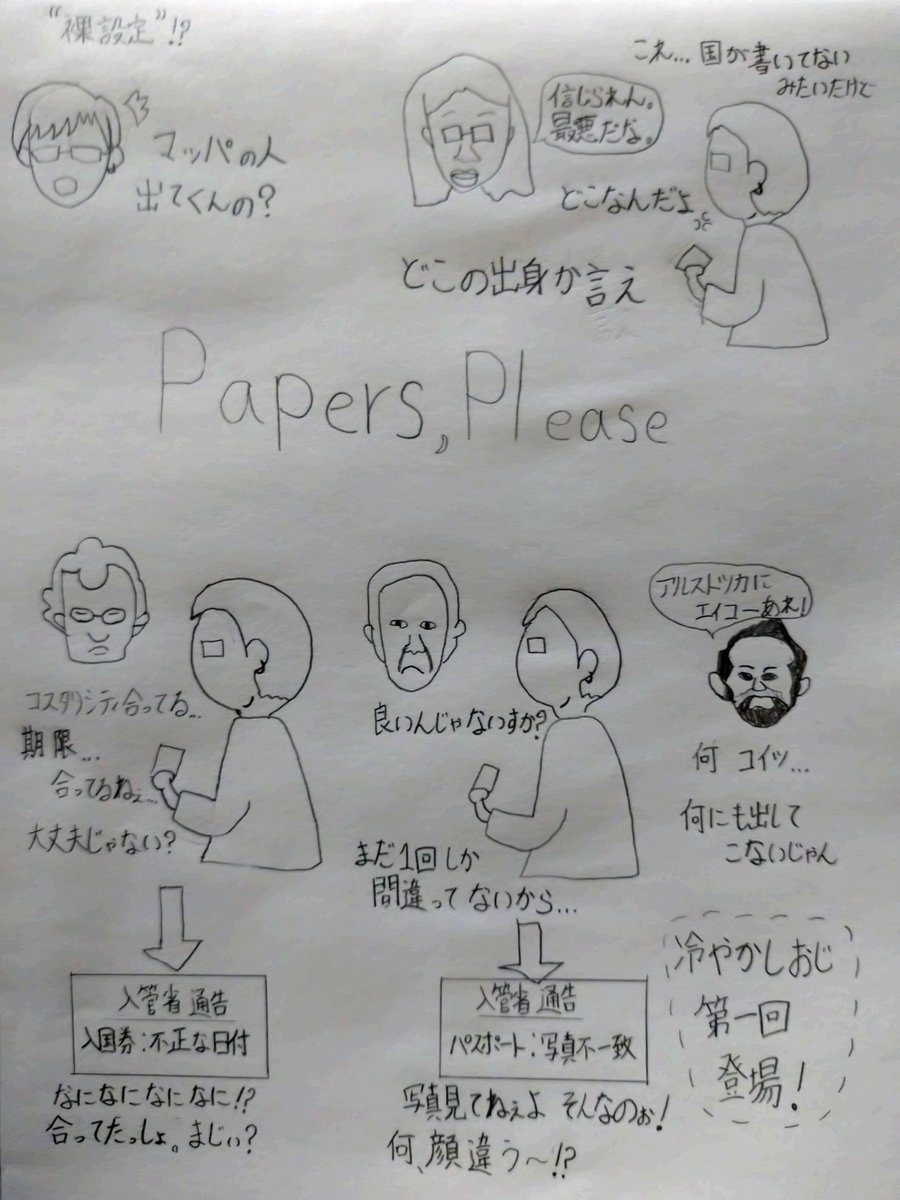 "裸設定"!?
マッパの人
出てくんの?
信じられん。
最悪だな。
これ…国が書いてない
みたいだけど
どこなんだよ
どこの出身か言え
Papers, Please
コスタリシティ合ってる…
期限…
合ってるねぇ…
大丈夫じゃない?
入管省通告
入国券:不正な日付
なになになになに!?
合ってたっしょ。まじぃ?
良いんじゃないすか?
まだ1回しか
間違ってないから…
入管省通告
パスポート:写真不一致
写真見てねぇよ そんなのぉ!
何、顔違う〜!?
アルストツカに
エイコーあれ!
何 コイツ…
何にも出して
こないじゃん
冷やかしおじ
第一回
登場!